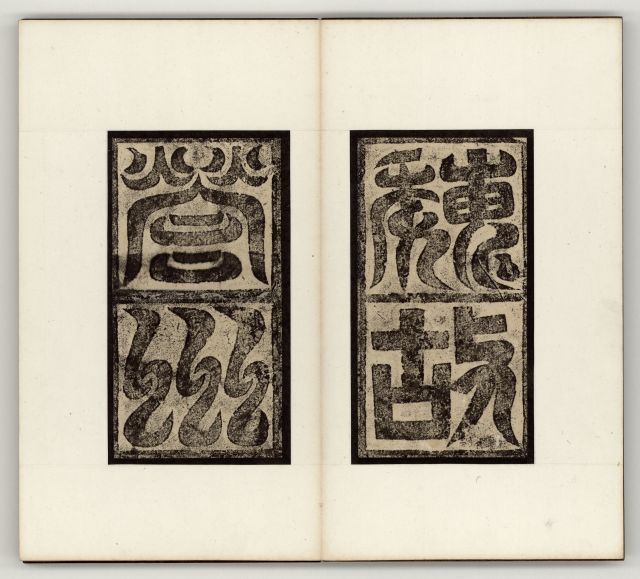 魏故
營州